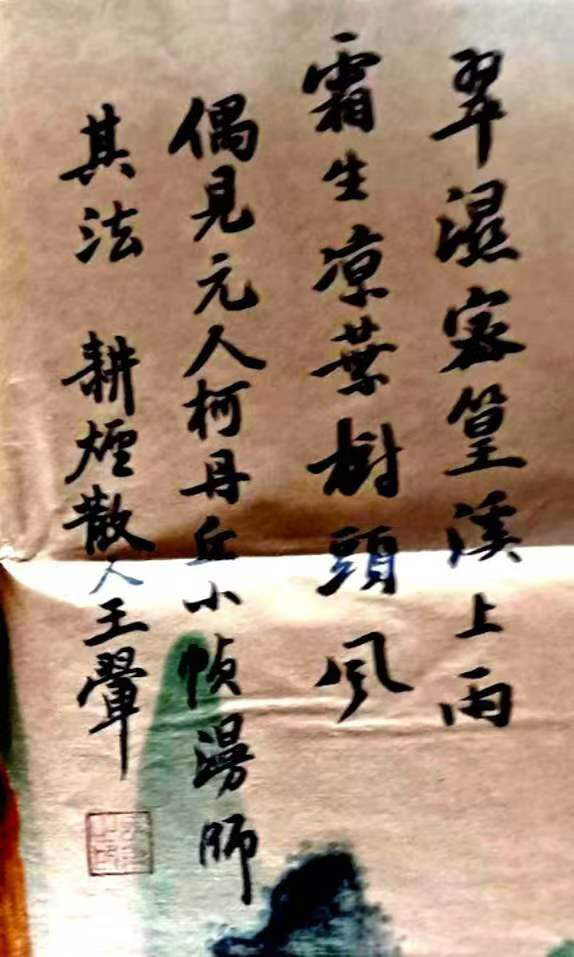 翠濕密篁溪上雨
霜生凉葉樹頭風
偶見元人柯丹丘小幀漫師
其法 耕煙散人王翬